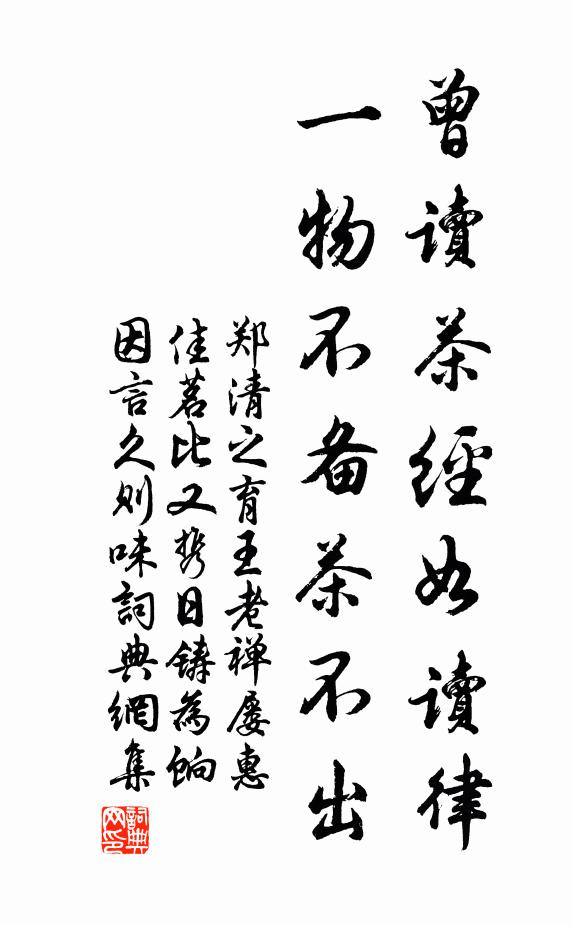 曾讀茶經如讀律
一物不备茶不出
郑清之育王老禅屡惠
佳茗比又携日铸為饷
因言久则味詞典網集
詞典
网印